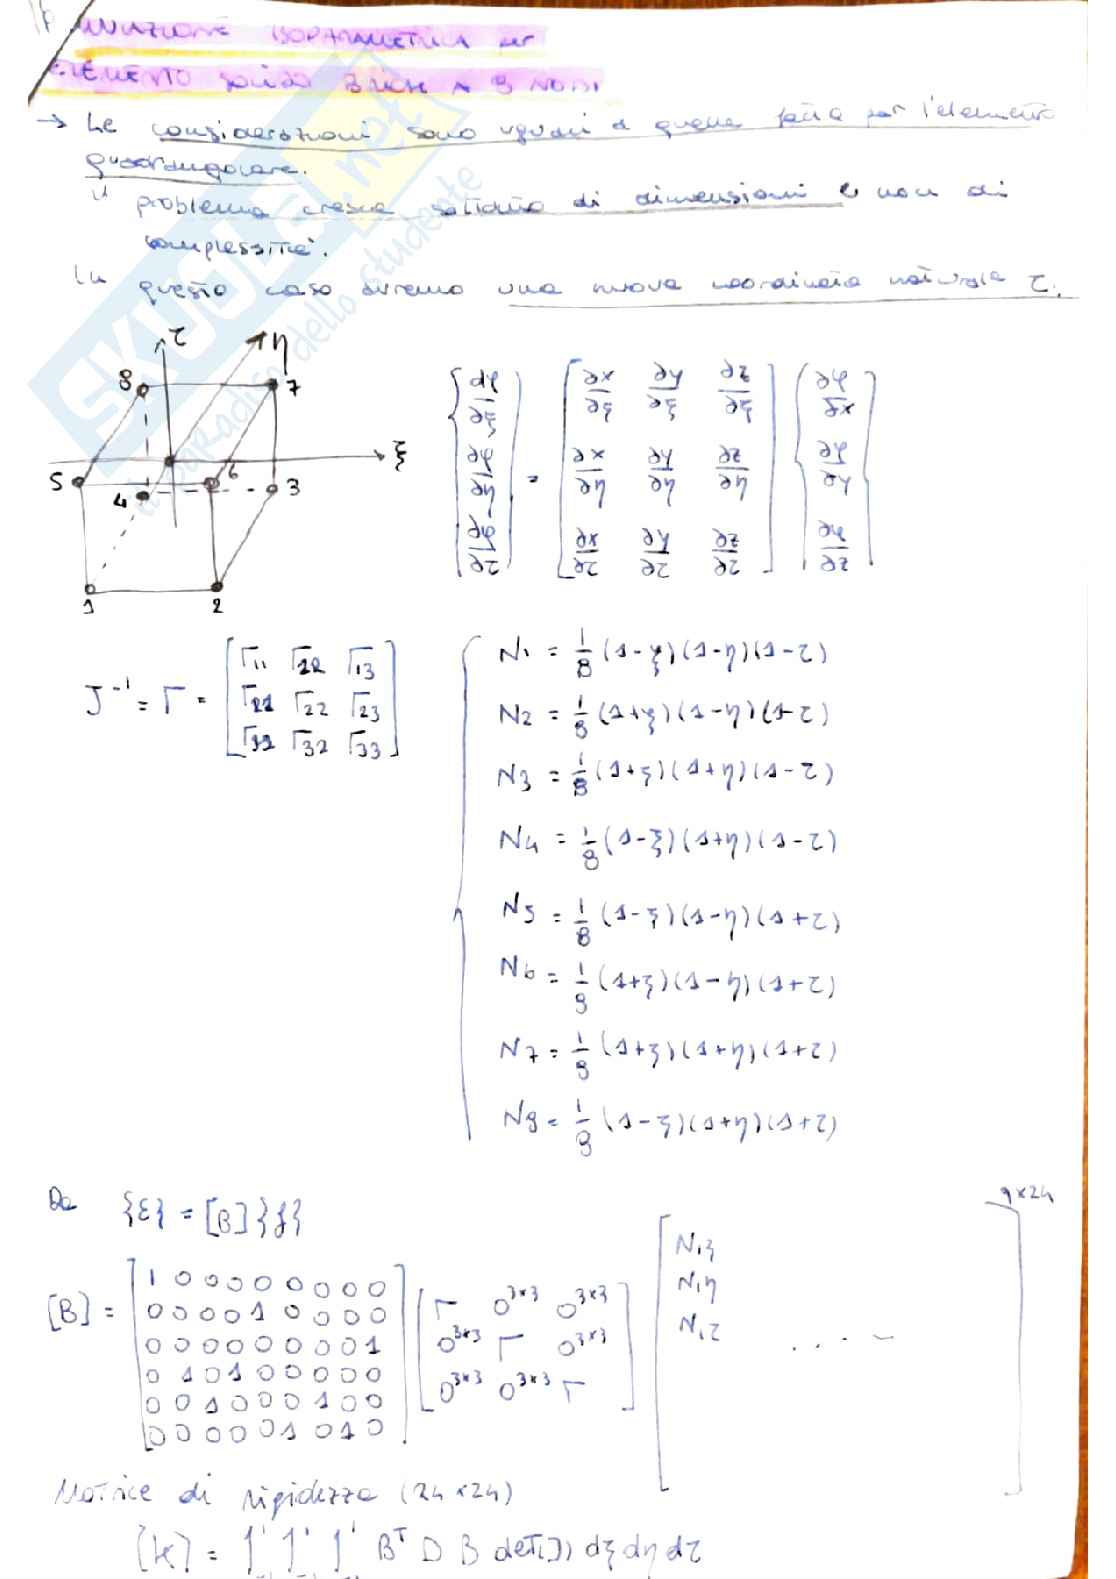 FORMULAZIONE ISOPARAMETRICA per
ELEMENTO SOLIDO BRICK A 8 NODI
→ Le considerazioni sono uguali a quelle fatte per l'elemento
quadrangolare.
Il problema cresce soltanto di dimensioni e non di
complessità.
In questo caso avremo una nuova coordinata naturale τ.
SKUOLA.net
il paradiso dello studente
τ η
8 7
ξ
5 6
4 3
1 2
{∂φ/∂ξ, ∂φ/∂η, ∂φ/∂τ} = [∂x/∂ξ ∂y/∂ξ ∂z/∂ξ
∂x/∂η ∂y/∂η ∂z/∂η
∂x/∂τ ∂y/∂τ ∂z/∂τ] {∂φ/∂x, ∂φ/∂y, ∂φ/∂z}
J⁻¹ = Γ = [Γ11 Γ22 Γ13
Γ21 Γ22 Γ23
Γ31 Γ32 Γ33]
N1 = 1/8 (1-ξ)(1-η)(1-τ)
N2 = 1/8 (1+ξ)(1-η)(1-τ)
N3 = 1/8 (1+ξ)(1+η)(1-τ)
N4 = 1/8 (1-ξ)(1+η)(1-τ)
N5 = 1/8 (1-ξ)(1-η)(1+τ)
N6 = 1/8 (1+ξ)(1-η)(1+τ)
N7 = 1/8 (1+ξ)(1+η)(1+τ)
N8 = 1/8 (1-ξ)(1+η)(1+τ)
Da {ε} = [B]{f}
9×24
[B] = [1 0 0 0 0 0 0 0 0
0 0 0 0 1 0 0 0 0
0 0 0 0 0 0 0 0 1
0 1 0 1 0 0 0 0 0
0 0 1 0 0 0 1 0 0
0 0 0 0 0 1 0 1 0]
[Γ 0³ˣ³ 0³ˣ³
0³ˣ³ Γ 0³ˣ³
0³ˣ³ 0³ˣ³ Γ]
[N1ξ
N1η
N1τ ....]
Matrice di rigidezza (24×24)
[K] = ∫¹ ∫¹ ∫¹ Bᵀ D B det(J) dξ dη dτ